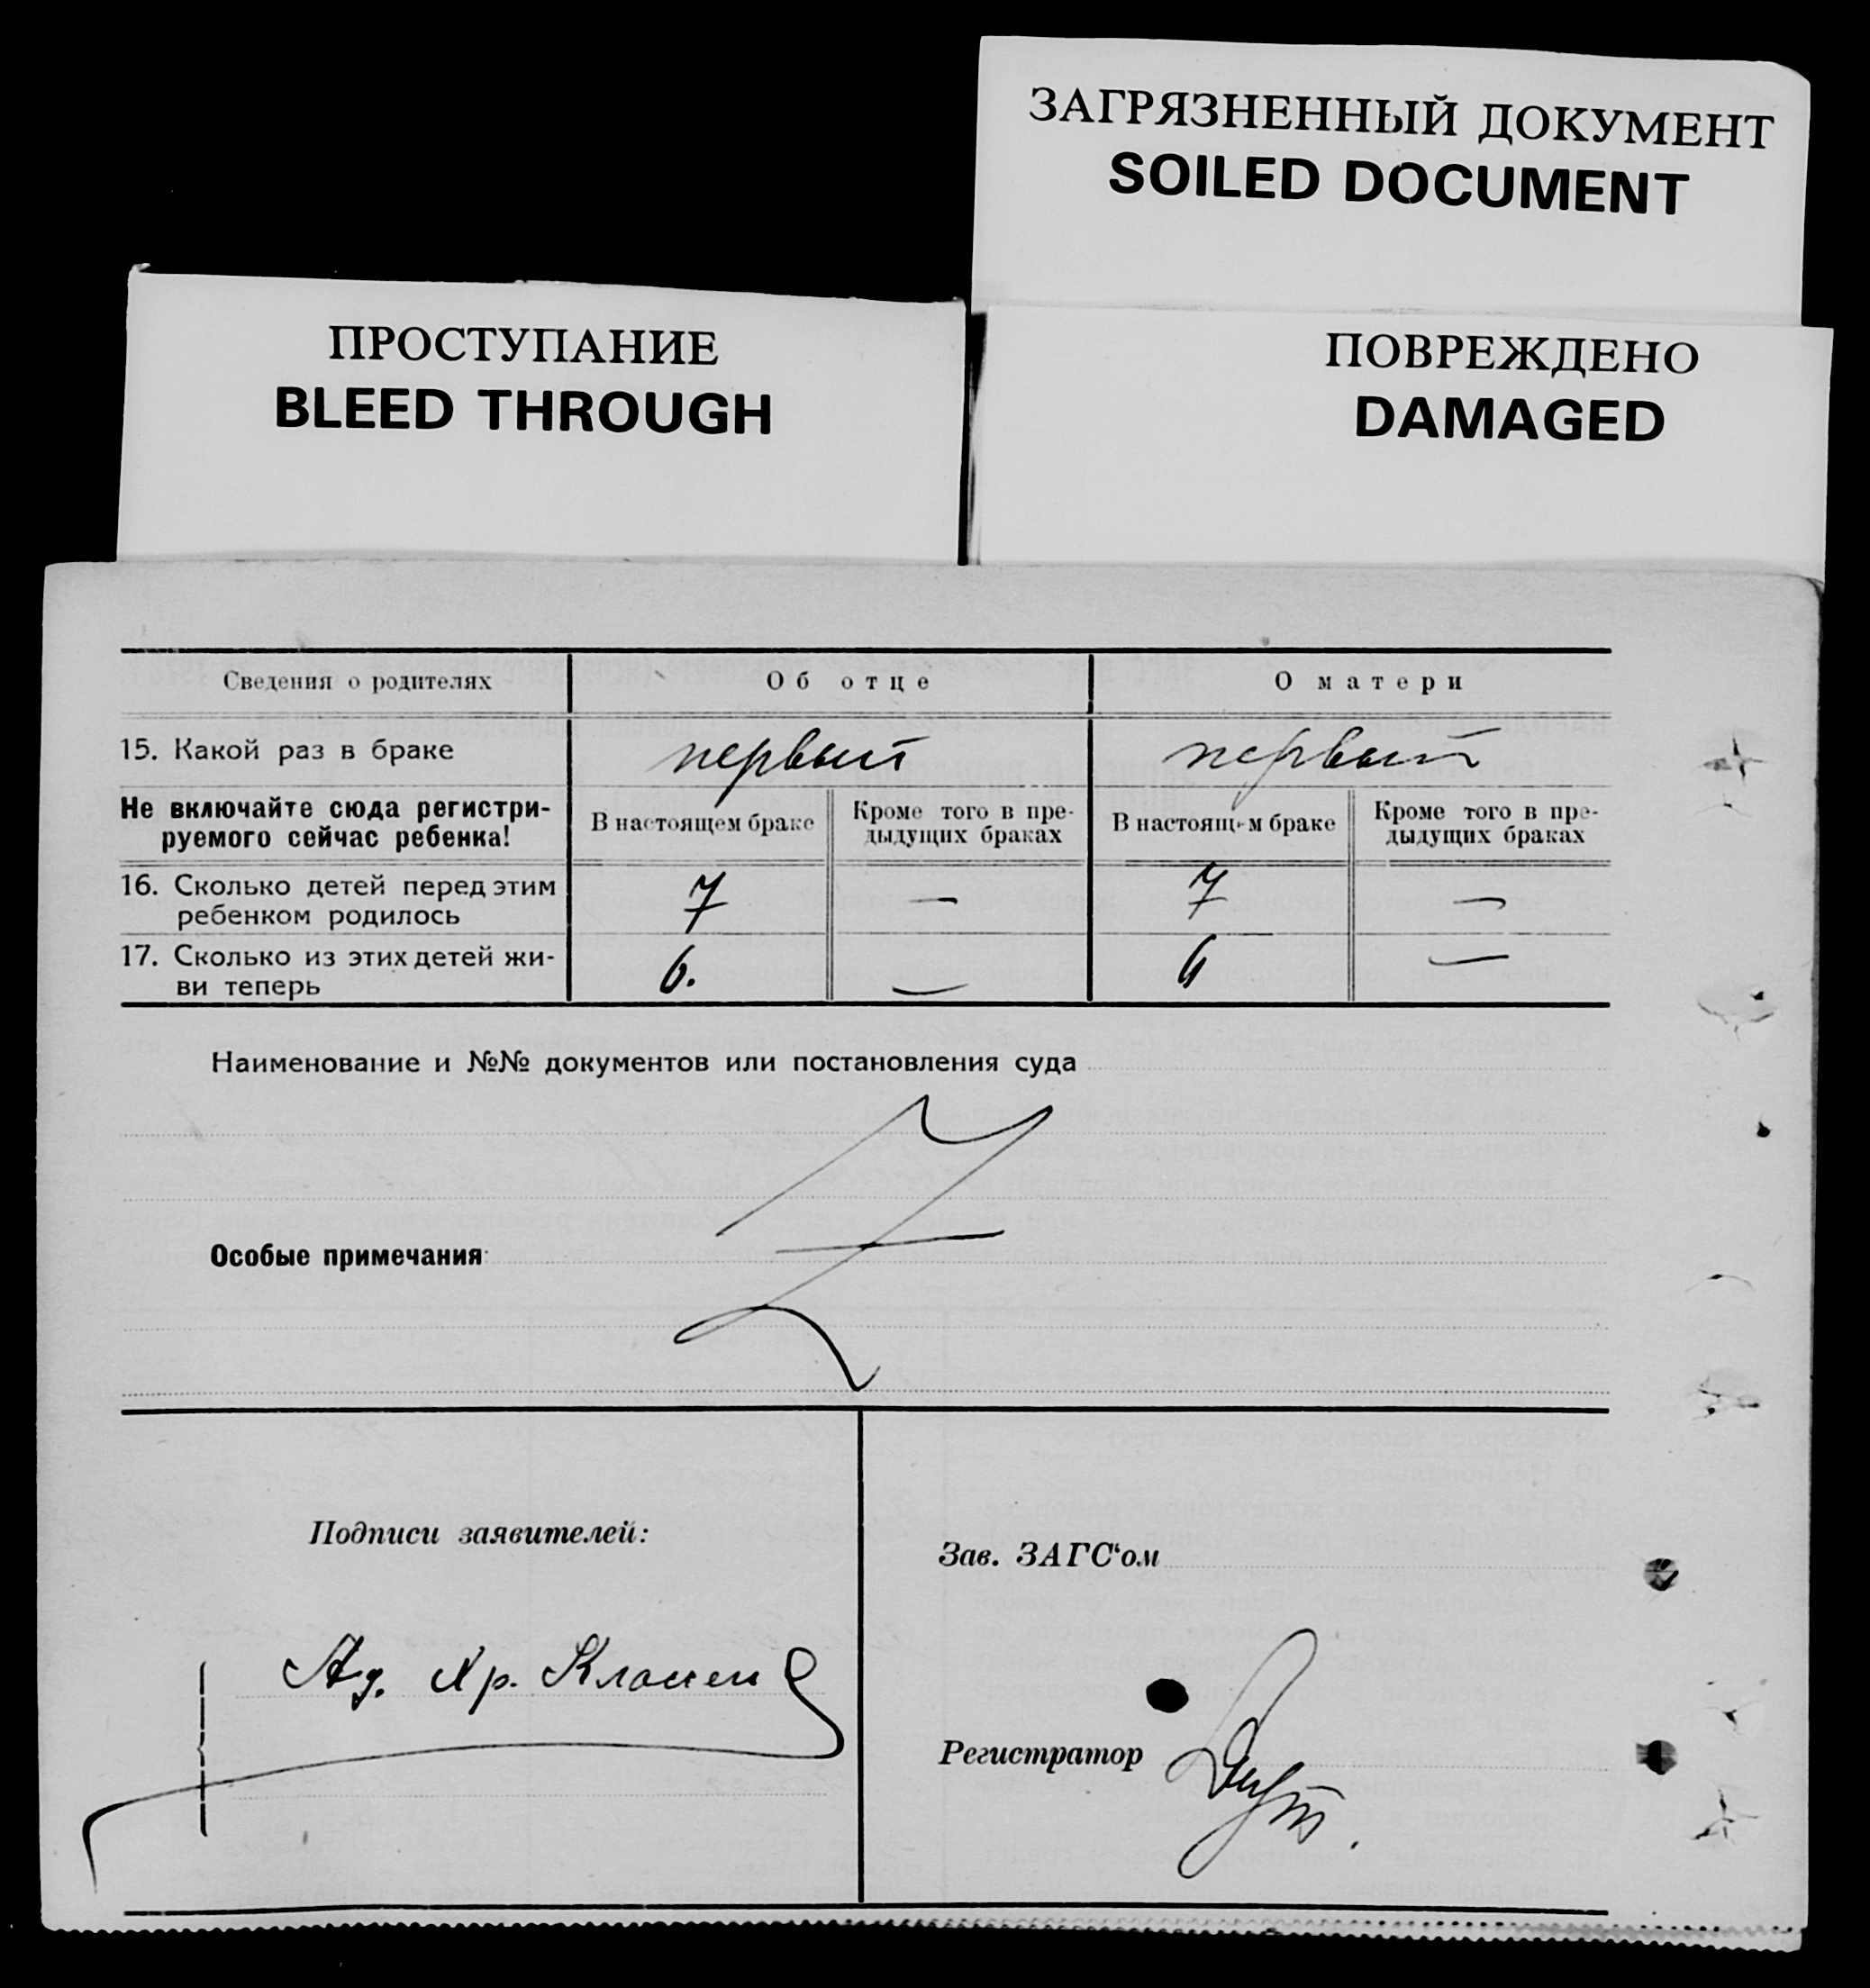 ЗАГРЯЗНЕННЫЙ ДОКУМЕНТ
SOILED DOCUMENT
ПРОСТУПАНИЕ
BLEED THROUGH
ПОВРЕЖДЕНО
DAMAGED
Сведения о родителях Об отце О матери
15. Какой раз в браке первый первый
Не включайте сюда регистри-
руемого сейчас ребенка!
В настоящем браке
Кроме того в пре-
дыдущих браках
В настоящем браке
Кроме того в пре-
дыдущих браках
16. Сколько детей перед этим
ребенком родилось
7 — 7 —
17. Сколько из этих детей жи-
ви теперь
6. — 6 —
Наименование и №№ документов или постановления суда
Особые примечания
Подписи заявителей:
Ад. Хр. Классен
Зав. ЗАГС‘ом
Регистратор